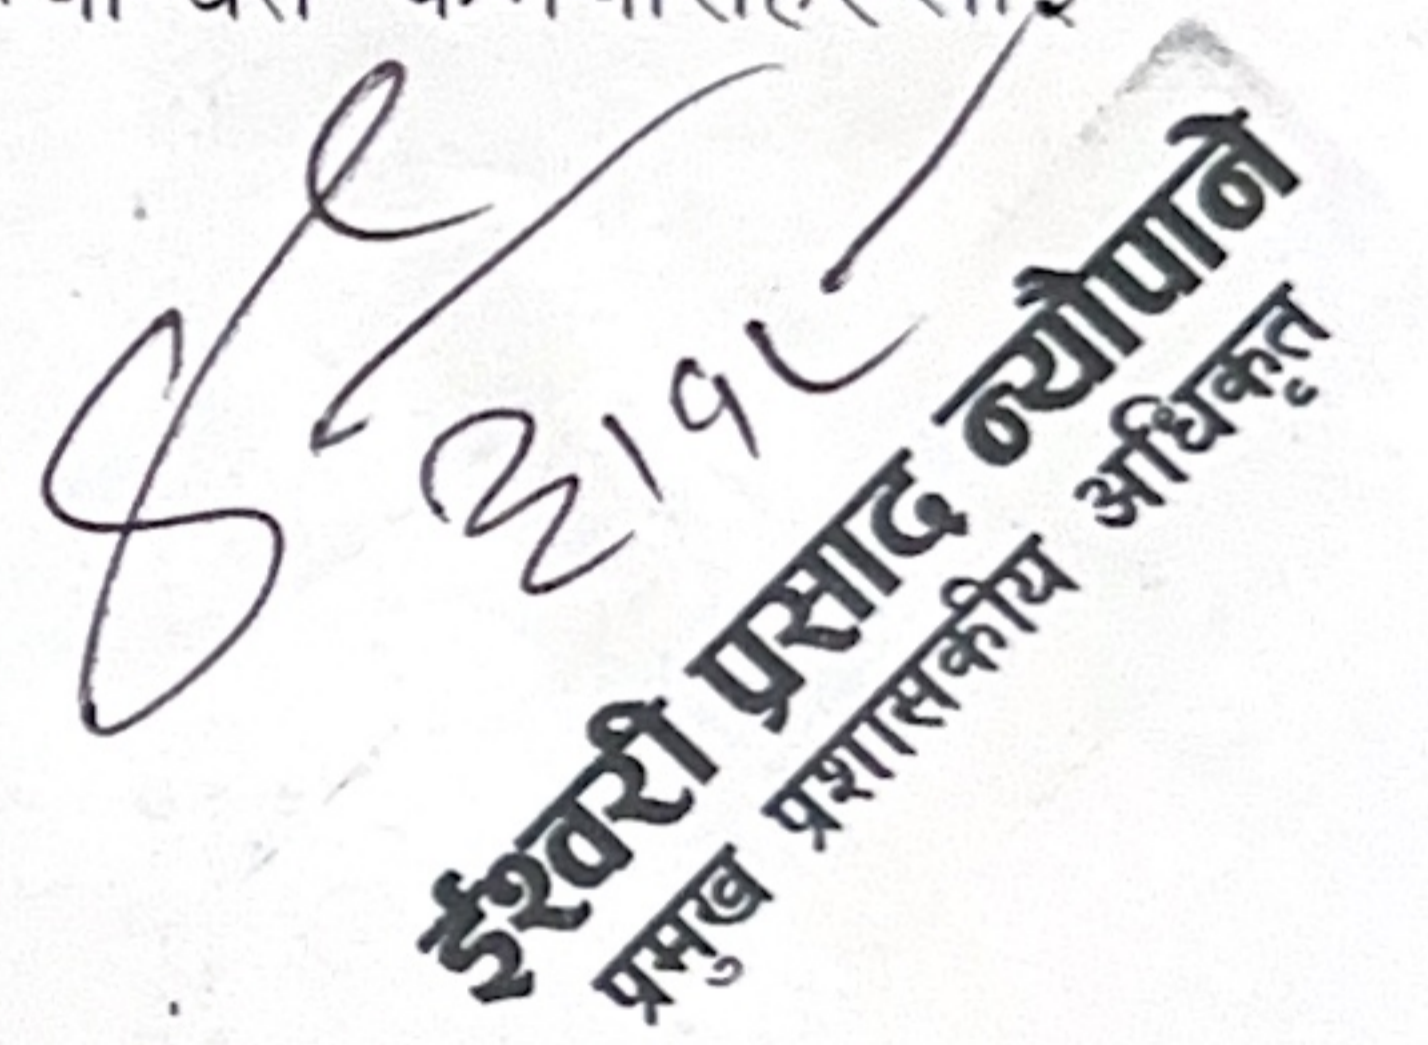 ३।१८
ईश्वरी प्रसाद न्यौपाने
प्रमुख प्रशासकीय अधिकृत